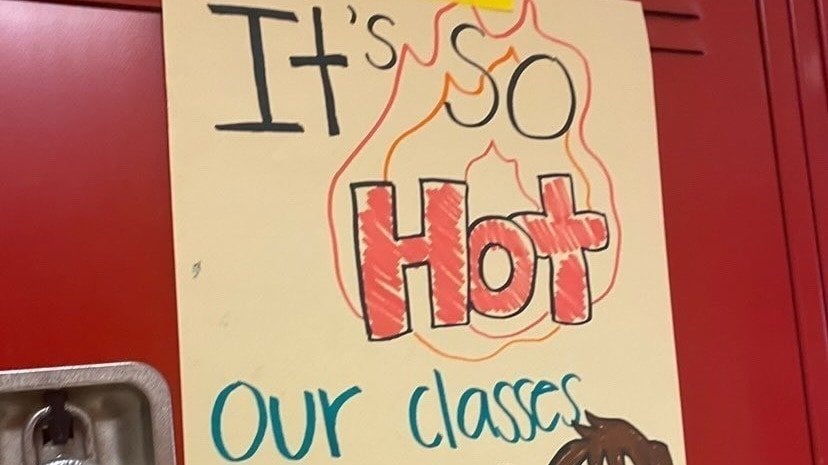 It's So
Hot
Our classes